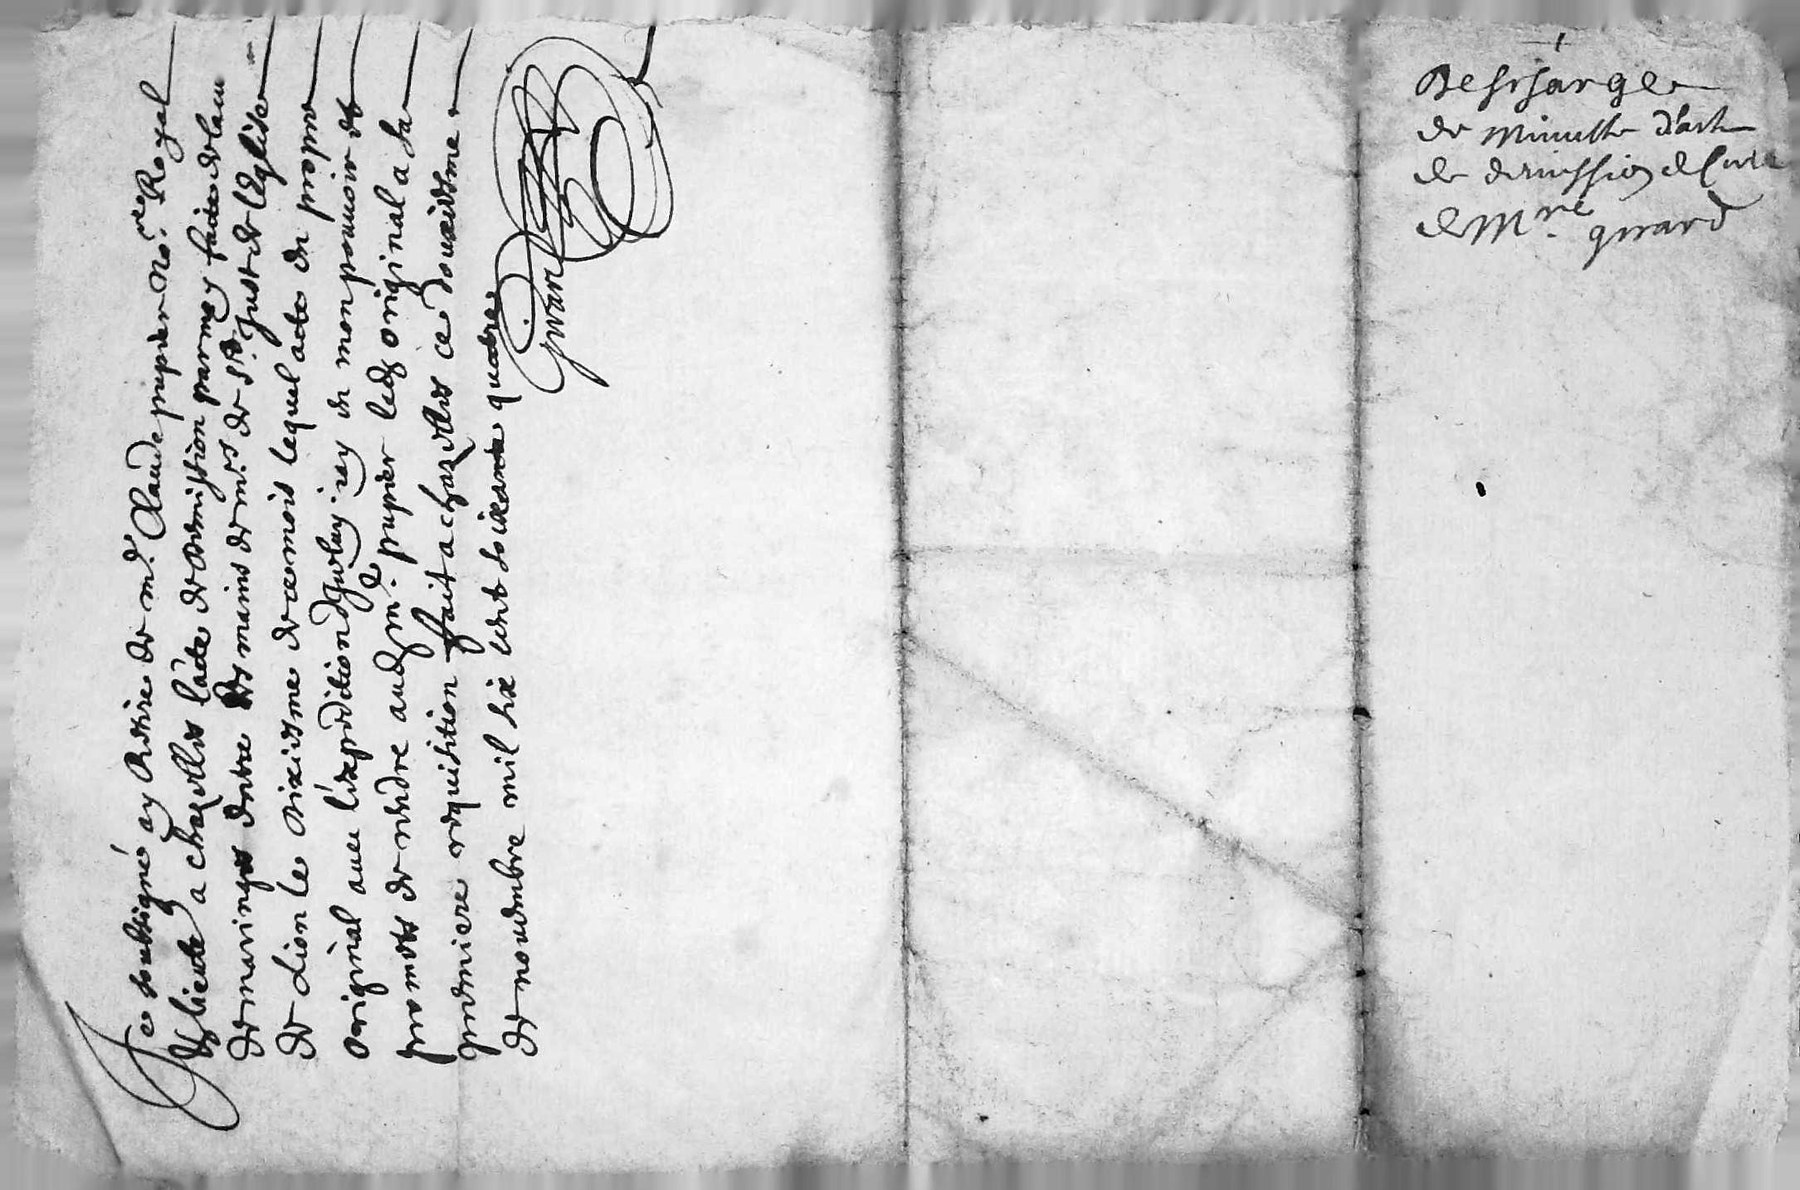 Je soubsigné ay Retire de m.e Claude pupier No.re Royal
a chazelles l'acte de demission par moy faite de la cu
de maringes entre les mains de m.rs de S.t Just de l'Eglise
de Lion le sixiesme de ce mois lequel acte en propre
original avec l'expedition d'iceluy iay en mon pouvoir et
promets de rendre aud m.e pupier led original a sa
premiere requisition fait a chazelles ce douxiesme
de novembre mil six cent soixante quatre
Girard
Descharge
de Minutte d'acte
de demission de Cure
de M.re girard